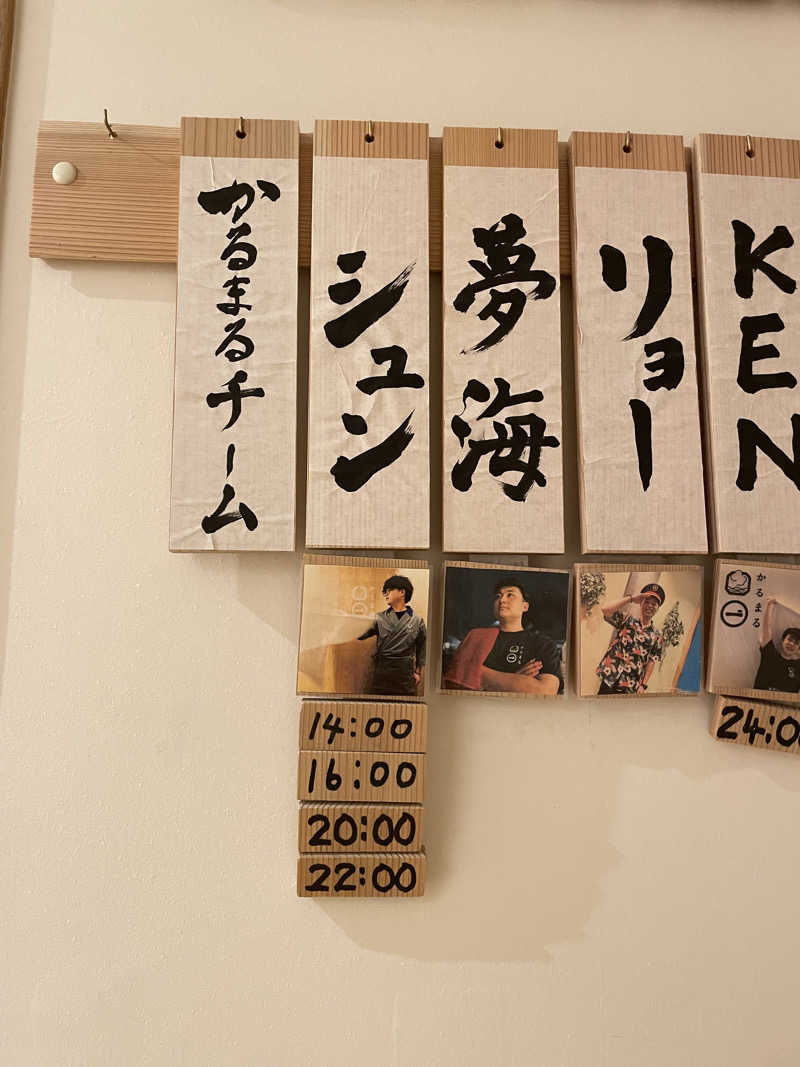 かるまるチーム
シュン
夢海
リョー
KEN
かるまる
14:00
16:00
20:00
22:00
24:0